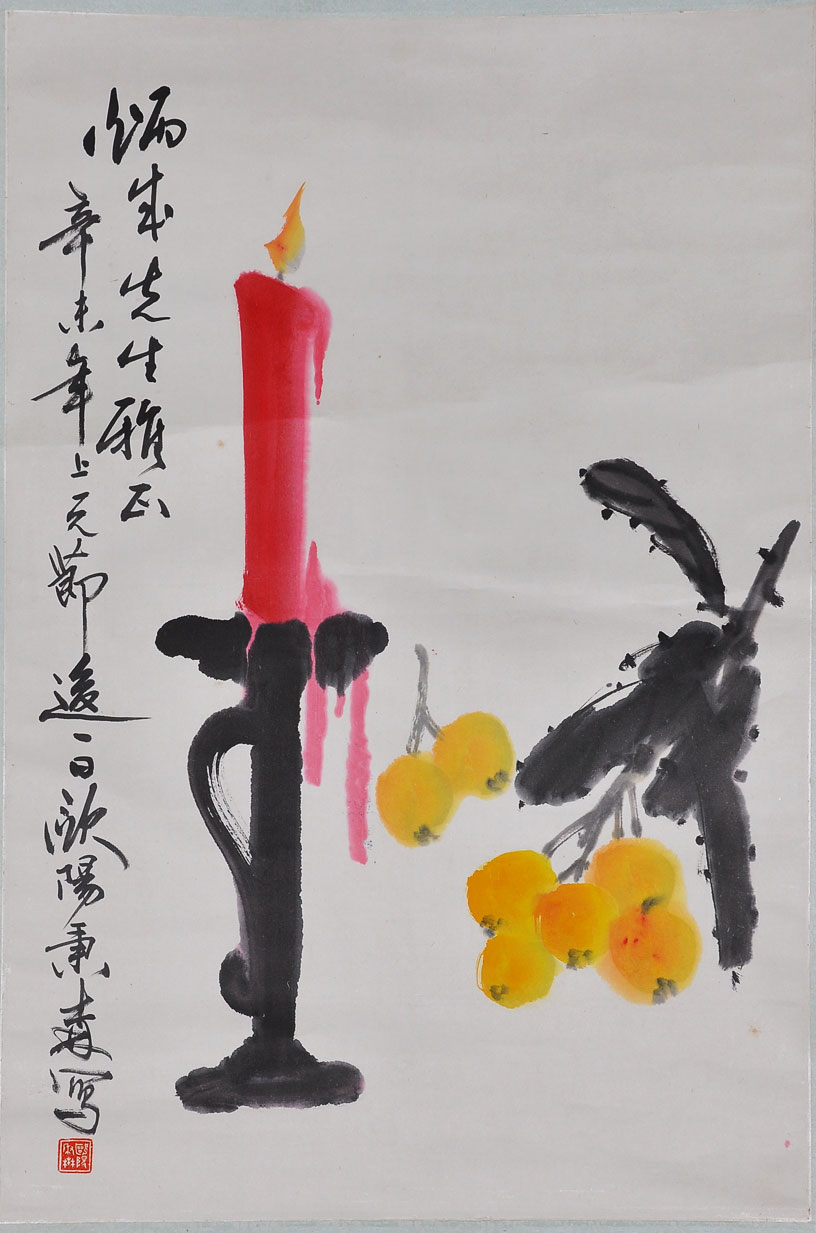 炳成先生雅正
辛未年上元節後一日歐陽秉森寫